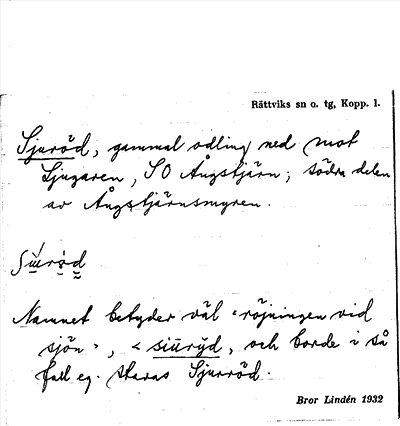 Rättviks sn o. tg, Kopp. l.
Sjuröd, gammal odling ned mot
Ljugaren, SO Ångstjärn; södra delen
av Ångstjärnsmyren.
Namnet betyder väl "röjningen vid
sjön", < siūryd, och borde i så
fall eg. skrivas Sjurröd.
Bror Lindén 1932